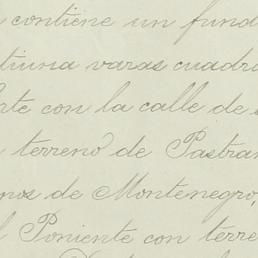 contiene un fund
tiuna varas cuadra
te con la calle de
terreno de Pastran
nos de Montenegro,
l Poniente con terre